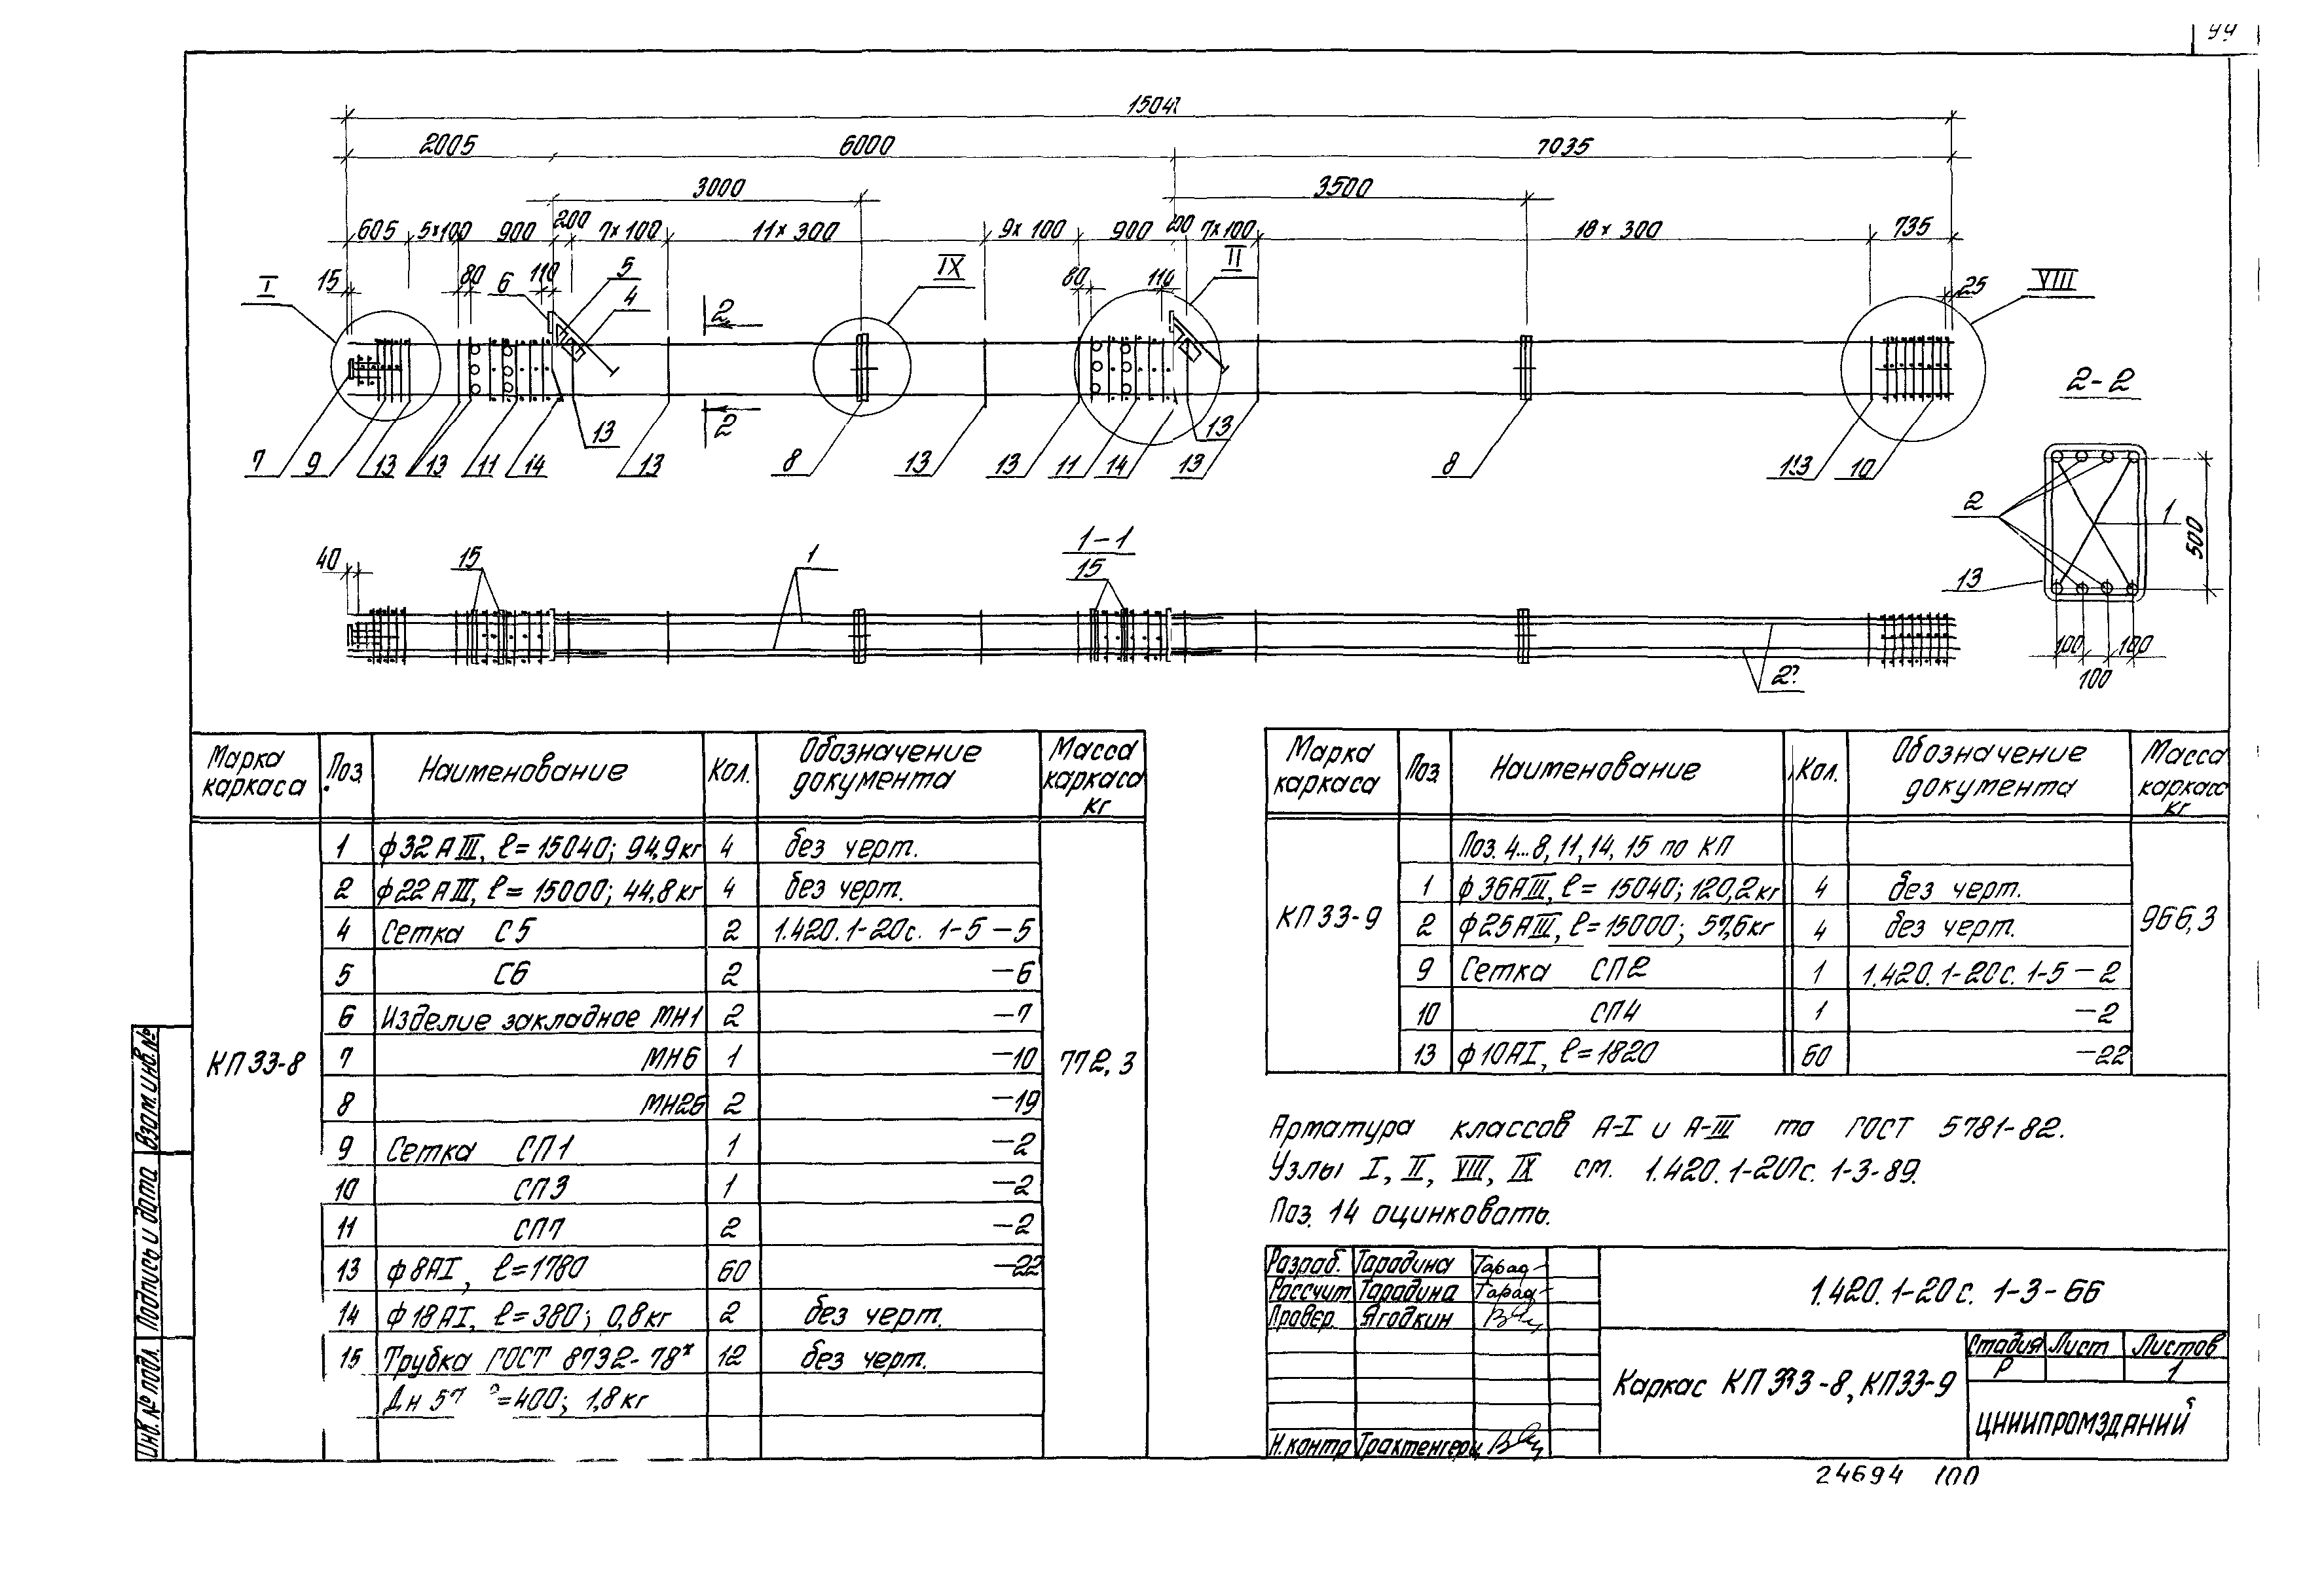 44
1504
2005 6000 7035
3000 3500
605 5×100 900 200 7×100 11×300 9×100 900 200 7×100 18×300 735
15 80 6 110 5 4 80 110 25
I IX II VIII
2
2
2-2
7 9 13 13 11 14 13 13 8 13 13 11 14 13 13 8 13 10
2 1 500 13
100 100
100
1-1
40 15 1 15 2
Марка каркаса Поз. Наименование Кол. Обозначение документа Масса каркаса кг
КП33-8 772,3
1 ф32АIII, ℓ=15040; 94,9кг 4 без черт.
2 ф22АIII, ℓ=15000; 44,8кг 4 без черт.
4 Сетка С5 2 1.420.1-20с. 1-5 -5
5 С6 2 -6
6 Изделие закладное МН1 2 -7
7 МН6 1 -10
8 МН26 2 -19
9 Сетка СП1 1 -2
10 СП3 1 -2
11 СП7 2 -2
13 ф8АI, ℓ=1780 60 -22
14 ф18АI, ℓ=380; 0,8кг 2 без черт.
15 Трубка ГОСТ 8732-78* 12 без черт.
Дн 57 =400; 1,8кг
Марка каркаса Поз Наименование Кол. Обозначение документа Масса каркаса кг
КП33-9 966,3
Поз. 4...8, 11, 14, 15 по КП
1 ф36АIII, ℓ=15040; 120,2кг 4 без черт.
2 ф25АIII, ℓ=15000; 57,6кг 4 без черт.
9 Сетка СП2 1 1.420.1-20с. 1-5 -2
10 СП4 1 -2
13 ф10АI, ℓ=1820 60 -22
Арматура классов А-I и А-III по ГОСТ 5781-82.
Узлы I, II, VIII, IX см. 1.420.1-20с. 1-3-89.
Поз. 14 оцинковать.
Разраб. Тарадина Тарад
Рассчит Тарадина Тарад
Провер. Ягодкин
Н.контр Трахтенгерц
1.420.1-20с. 1-3-66
Каркас КП33-8, КП33-9
Стадия Лист Листов
Р 1
ЦНИИПРОМЗДАНИЙ
Инв.№ подл. Подпись и дата Взам.инв.№
24694 100